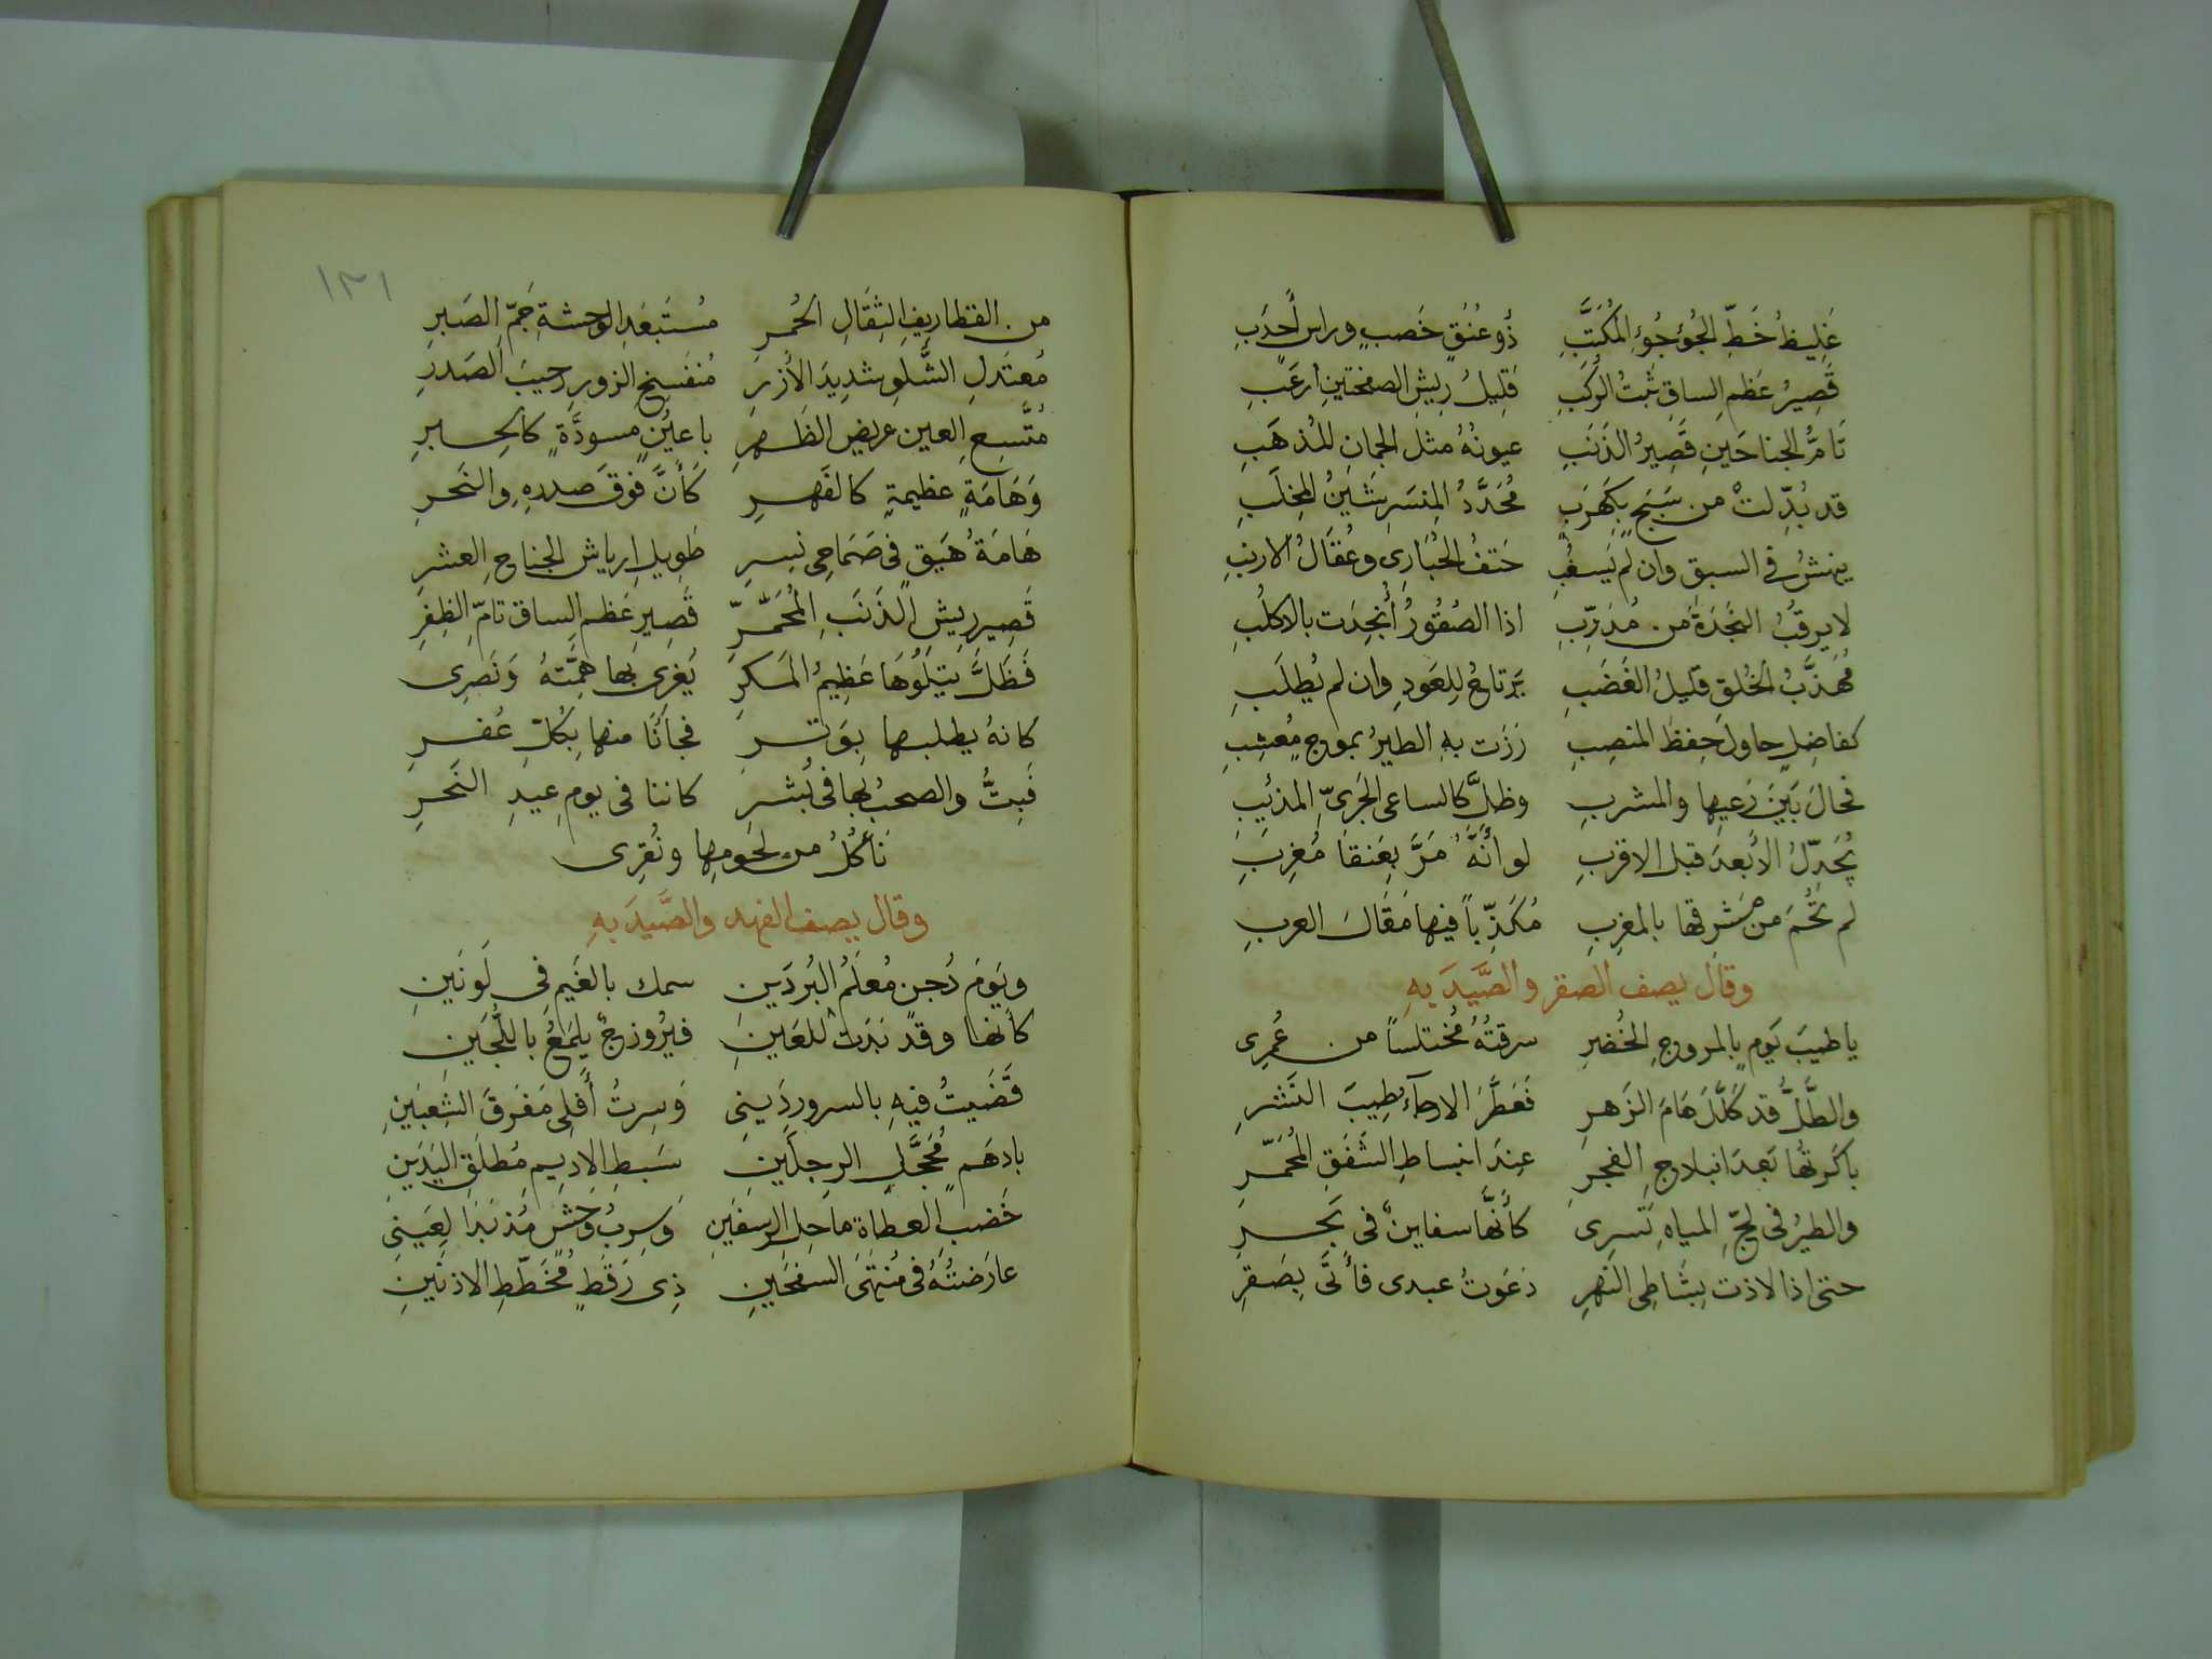 غَلِيظُ خَطِّ الجُؤجُؤِ المُكَتَّبِ ذُو عُنُقٍ خَصبٍ وراس أَحدَبِ
قَصِيرُ عَظمِ الساقِ ثَبتُ الرُكَبِ قَلِيلُ رِيشِ الصفحتينِ ارعَبِ
تَامُّ الجناحَينِ قَصِيرُ الذَنَبِ عيونُهُ مثل الجمانِ المُذهَبِ
قد بُدِّلتْ من سَبَجٍ بِكَهرَبِ مُحَدَّدُ المِنسَرِ شَينُ المِخلَبِ
ينهشُ في السبقِ وان لم يَسغُبِ حَتفُ الحُبَارى وعُقَالُ الارنبِ
لا يرقبُ النَجدَةَ من مُدَرِّبِ اذا الصُقُورُ أُنجِدَت بالاكلُبِ
مُهَذَّبُ الخُلقِ قليلُ الغَضَبِ يَرتاحُ لِلعَودِ وان لم يُطلَبِ
كفاضِلٍ حاولَ حِفظَ المنصِبِ زَرَت بهِ الطيرُ بمرجٍ مُعشِبِ
فحالَ بَينَ رَعيِها والمشربِ وظلَّ كالساعى الجَرىِّ المذئِبِ
يُجَدِّلُ الأبعدَ قبل الاقربِ لو أَنَّهُ مَرَّ بِعَنقَا مُغرِبِ
لم تُحمَ من مَشرِقها بالمغرِبِ مُكَذِّباً فيها مَقَالَ العربِ
وقال يصف الصقر والصَّيدَ بهِ
يا طيبَ يَومٍ بالمروجِ الخُضرِ سرقتُهُ مُختلساً من عُمرِى
والطَّلُّ قد كَلَّلَ هَامَ الزَهرِ فَعَطَّرَ الارجآءَ طِيبَ النَشرِ
باكَرتُها بَعدَ انبلاجِ الفجرِ عِندَ انبساطِ الشَفَقِ المُحمَرِّ
والطيرُ فى لجِّ المياهِ تَسرِى كأَنَّها سفاينٌ فى بَحرِ
حتى اذا لاذت بِشَاطِى النهرِ دَعَوتُ عبدى فأَتَى بِصَقرِ
١٣١
من الغطاريفِ الثِقَالِ الحُمرِ مُستَبعَدِ الوحشةِ جَمِّ الصَبرِ
مُعتَدلِ الشَّلوِ شديدِ الأزرِ مُنفَسِخِ الزورِ رحيبَ الصَدرِ
مُتَّسِعِ العين عريضِ الظَهرِ باعيُنٍ مسودَّةٍ كالحِبرِ
وَهَامَةٍ عظيمةٍ كالفَهرِ كَأَنَّ فوقَ صدرهِ والنَحرِ
هَامَةُ هَيقٍ فى صَمَاحى نسرِ طَوِيلِ ارياش الجناحِ العشرِ
قَصِيرِ رِيشِ الذَنَبِ المُحَمَّرِ قَصِيرِ عَظمِ الساقِ تامِّ الظِفرِ
فَظَلَّ يَتلُوهَا عَظِيمُ المَكرِ يَغرِى بها هِمَّتهُ وَنَصرِى
كانهُ يطلبها بِوَترِ فجآنَا منها بِكُلِّ عُفرِ
فَبِتُّ والصحبُ بها فى بُشرِ كاننا فى يومِ عِيدِ النَحرِ
نَأكُلُ من لحَومِها ونُقرِى
وقال يصف الفهد والصَّيدَ بهِ
ويَومَ دُجنٍ مُعلَمُ البُردَينِ سمك بالغَيمِ فى لَونَينِ
كأنها وقد بَدَت للعَينِ فيرُوزجٌ يلمَعُ باللُّجَينِ
قَضَيتُ فيهِ بالسرورِ دَينِى وَسِرتُ أَفلِى مَفرَقَ الشِعبَينِ
بادهَمٍ مُحَجَّلِ الرجلَينِ سَبطِ الاديمِ مُطلَقِ اليَدَينِ
خَضبِ العطاةِ ماحِلِ الرسغَينِ وَسِربُ وَحشٍ مُذ بَدَا لِعَينِى
عارَضتُهُ فى مُنتَهَى السفحَينِ ذِى رَقَطٍ مُخَطَّطِ الاذنَينِ